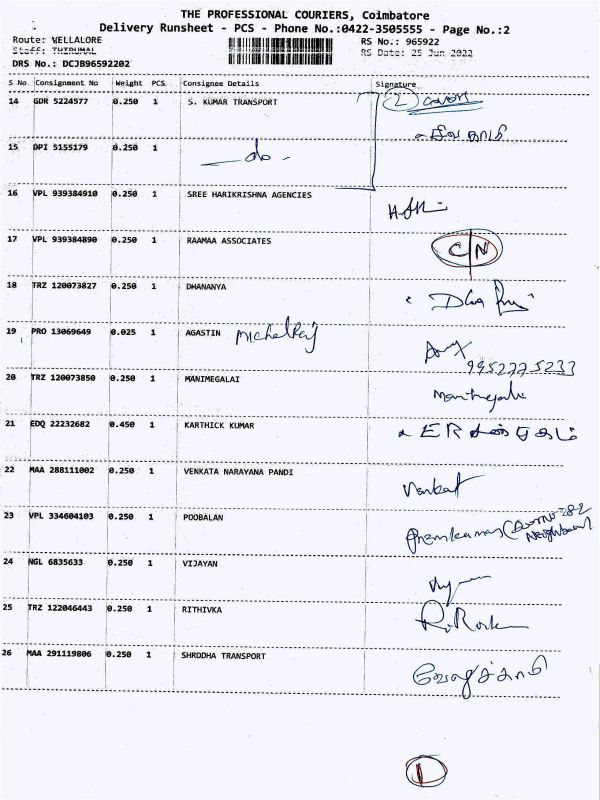 THE PROFESSIONAL COURIERS, Coimbatore
Delivery Runsheet - PCS - Phone No.:0422-3505555 - Page No.:2
Route: VELLALORE RS No.: 965922
Staff: THIRUMAL RS Date: 25 Jun 2022
DRS No.: DCJB96592202
S No Consignment No Weight PCS Consignee Details Signature
14 GDR 5224577 0.250 1 S. KUMAR TRANSPORT 2
15 OPI 5155179 0.250 1 - do -
16 VPL 939384910 0.250 1 SREE HARIKRISHNA AGENCIES
17 VPL 939384890 0.250 1 RAAMAA ASSOCIATES C N
18 TRZ 120073827 0.250 1 DHANANYA
19 PRO 13069649 0.025 1 AGASTIN Michelraj
9952775233
20 TRZ 120073850 0.250 1 MANIMEGALAI Manimegalai
21 EDQ 22232682 0.450 1 KARTHICK KUMAR ER
22 MAA 288111002 0.250 1 VENKATA NARAYANA PANDI Venkat
23 VPL 334604103 0.250 1 POOBALAN Premkumar
24 NGL 6835633 0.250 1 VIJAYAN
25 TRZ 122046443 0.250 1 RITHIVKA
26 MAA 291119806 0.250 1 SHRDDHA TRANSPORT